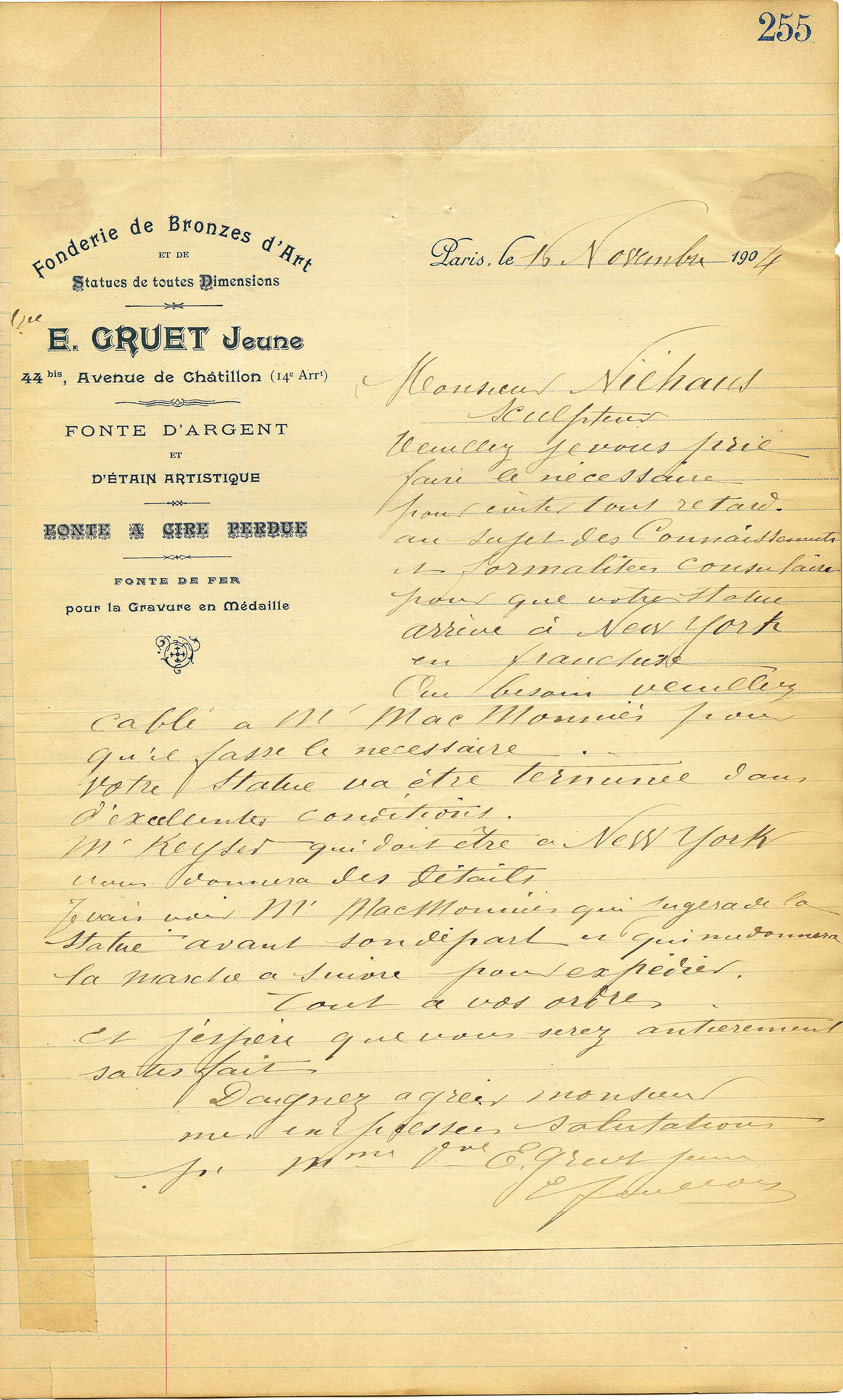 255
Fonderie de Bronzes d'Art
ET DE
Statues de toutes Dimensions
Vve
E. GRUET Jeune
44 bis, Avenue de Châtillon (14e Arrt)
FONTE D'ARGENT
ET
D'ÉTAIN ARTISTIQUE
FONTE A CIRE PERDUE
FONTE DE FER
pour la Gravure en Médaille
Paris, le 16 Novembre 1904
Monsieur Niehaus
Sculpteur
Veuillez je vous prie
faire le nécessaire
pour eviter tout retard.
au sujet des Connaissements
et formalitees Consulaire
pour que votre Statue
arrive à New York
en franchise
Au besoin veuillez
cablé a Mr Mac Monniés pour
qu'il fasse le necessaire.
Votre Statue va être terminée dans
d'excellentes conditions.
Mr Keyser qui doit être a New York
vous donnera des détails
Je vais voir Mr MacMonniés qui jugera de la
Statue avant son départ et qui me donnera
la marche a suivre pour expédier.
Tout a vos ordres
et j'espère que vous serez antierement
satisfait
Daignez agréer monsieur
mes empressées salutations
pr Mme Vve E. Gruet jeune
E